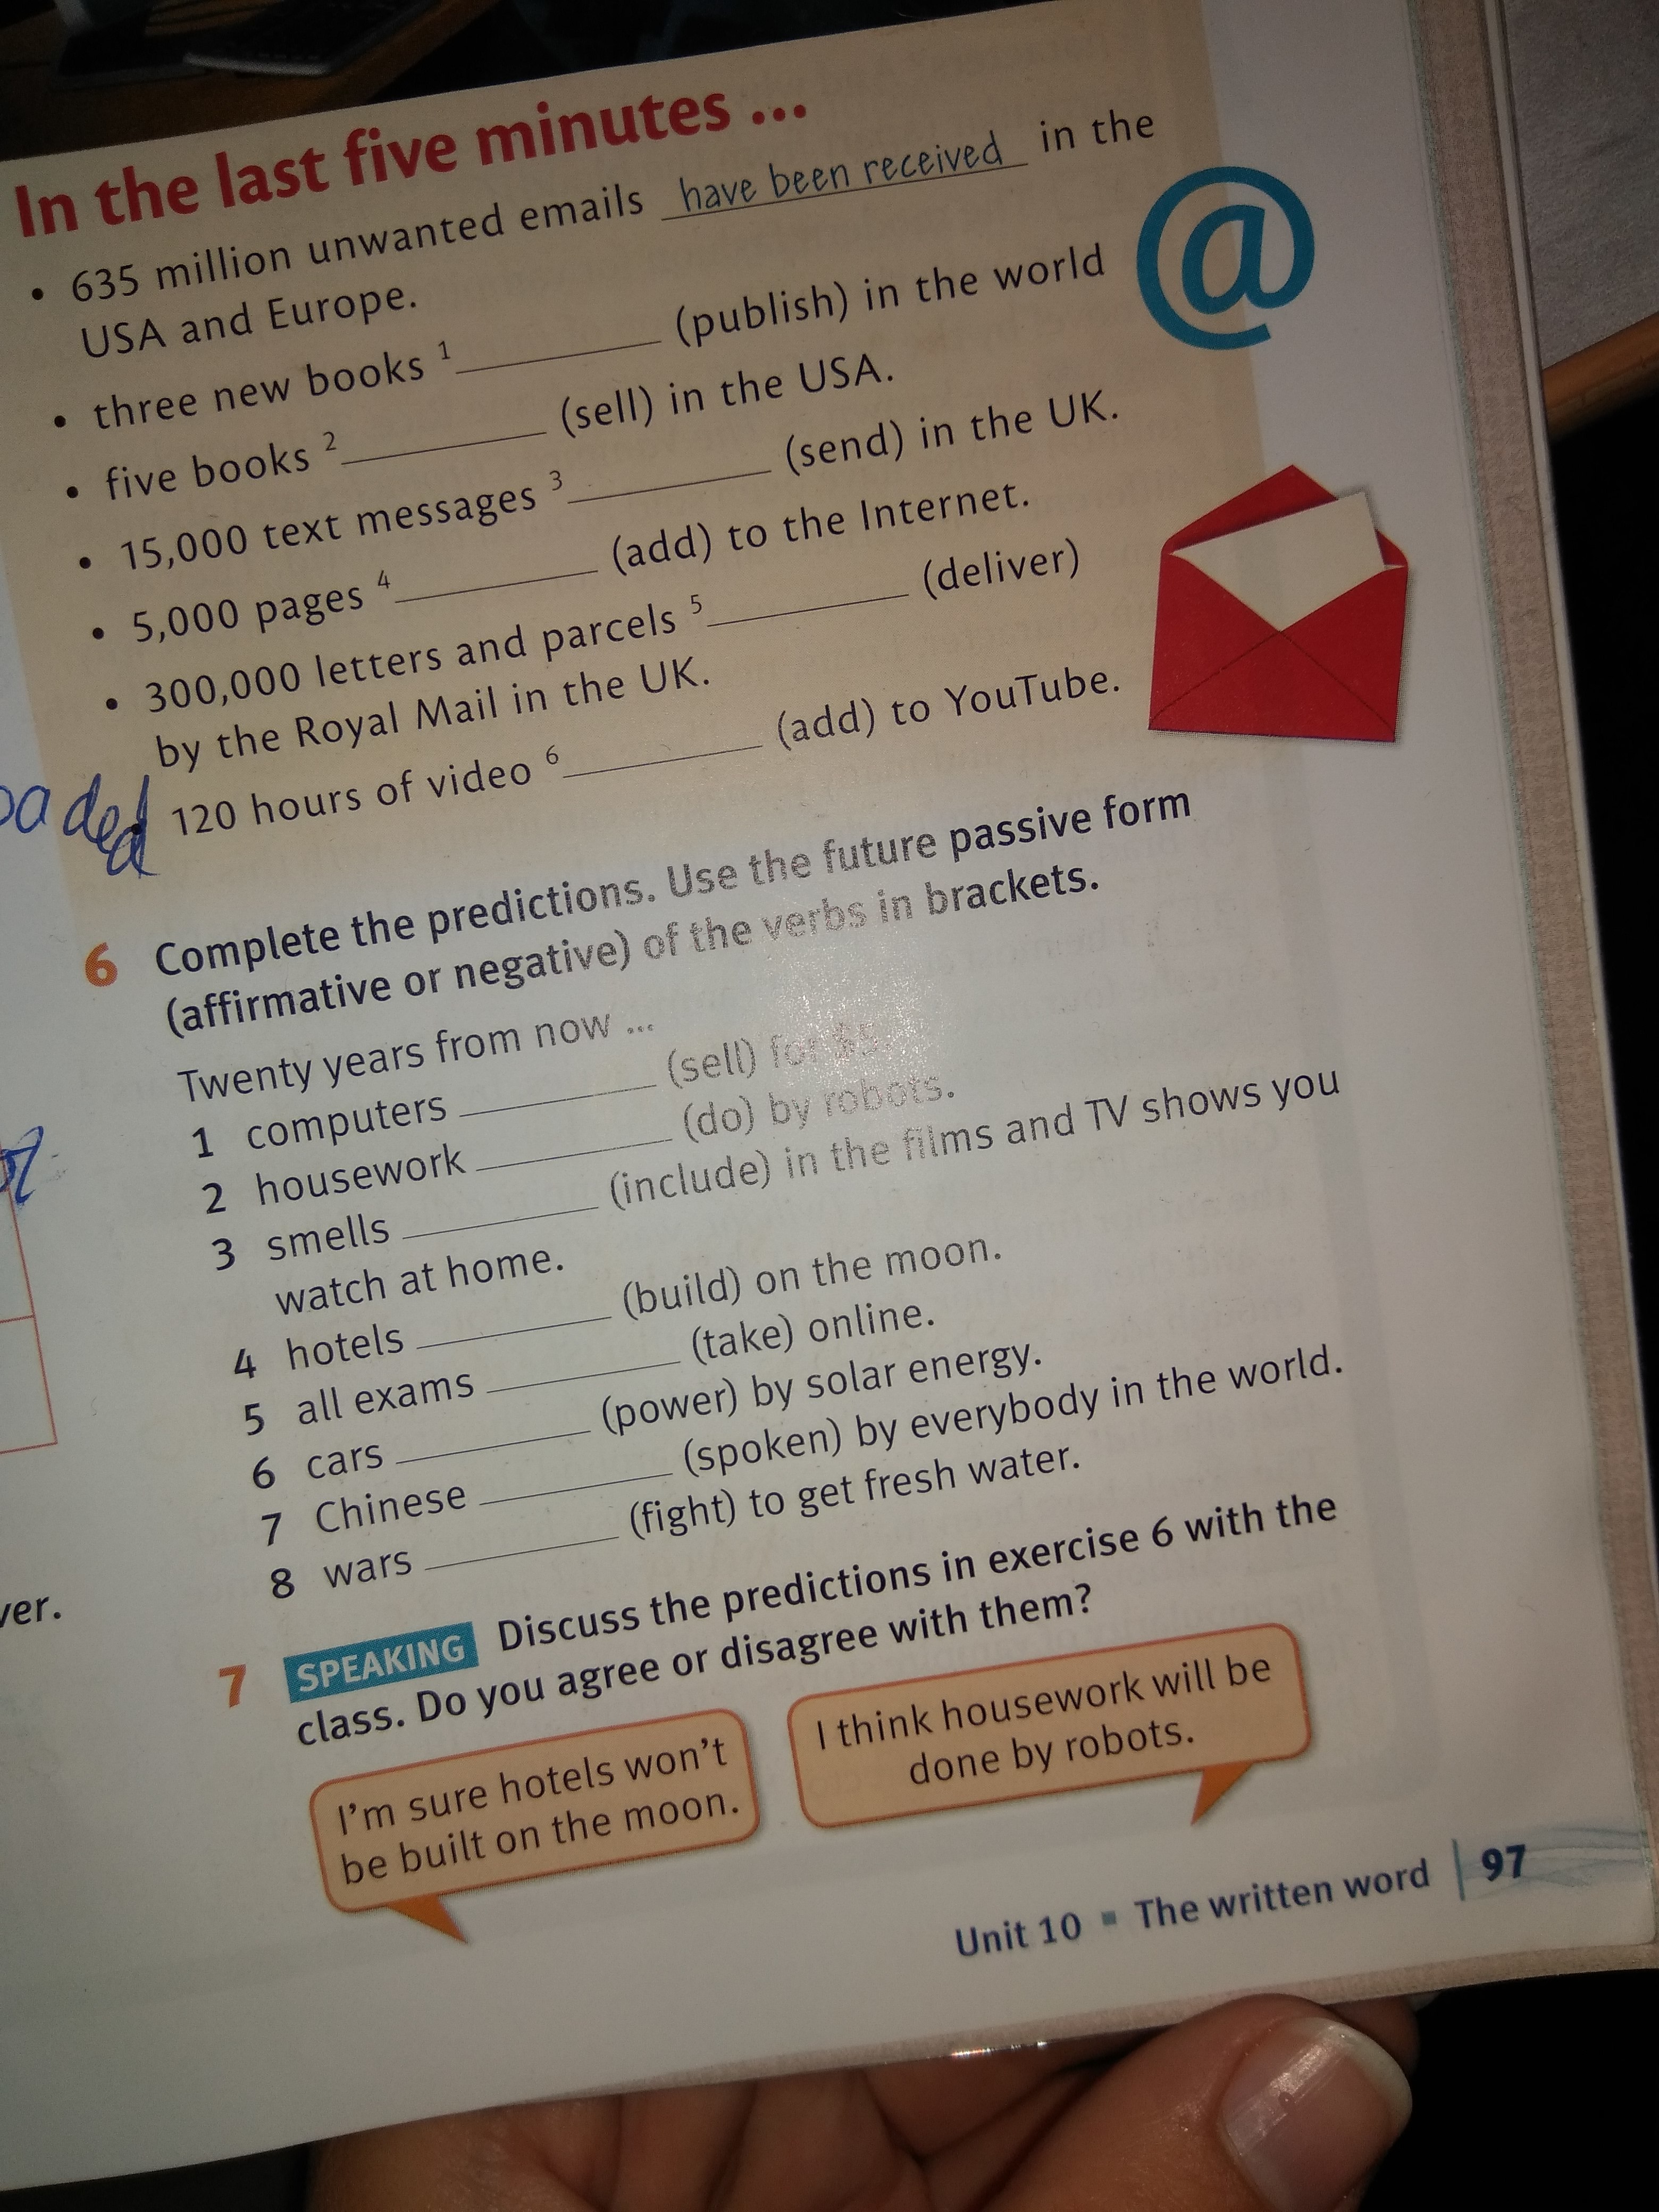 In the last five minutes ...
• 635 million unwanted emails have been received in the
USA and Europe.
• three new books 1__________ (publish) in the world
• five books 2__________ (sell) in the USA.
• 15,000 text messages 3__________ (send) in the UK.
• 5,000 pages 4__________ (add) to the Internet.
• 300,000 letters and parcels 5__________ (deliver)
by the Royal Mail in the UK.
• 120 hours of video 6__________ (add) to YouTube.
6 Complete the predictions. Use the future passive form
(affirmative or negative) of the verbs in brackets.
Twenty years from now ...
1 computers __________ (sell) for $5.
2 housework __________ (do) by robots.
3 smells __________ (include) in the films and TV shows you
watch at home.
4 hotels __________ (build) on the moon.
5 all exams __________ (take) online.
6 cars __________ (power) by solar energy.
7 Chinese __________ (spoken) by everybody in the world.
8 wars __________ (fight) to get fresh water.
7 SPEAKING Discuss the predictions in exercise 6 with the
class. Do you agree or disagree with them?
I'm sure hotels won't
be built on the moon.
I think housework will be
done by robots.
Unit 10 ▪ The written word | 97
@